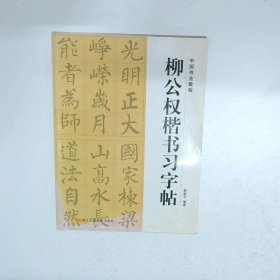 中国书法教程
柳公权楷书习字帖
光明正大
國家棟梁
崢嶸歲月
山高水長
能者為師
道法自然